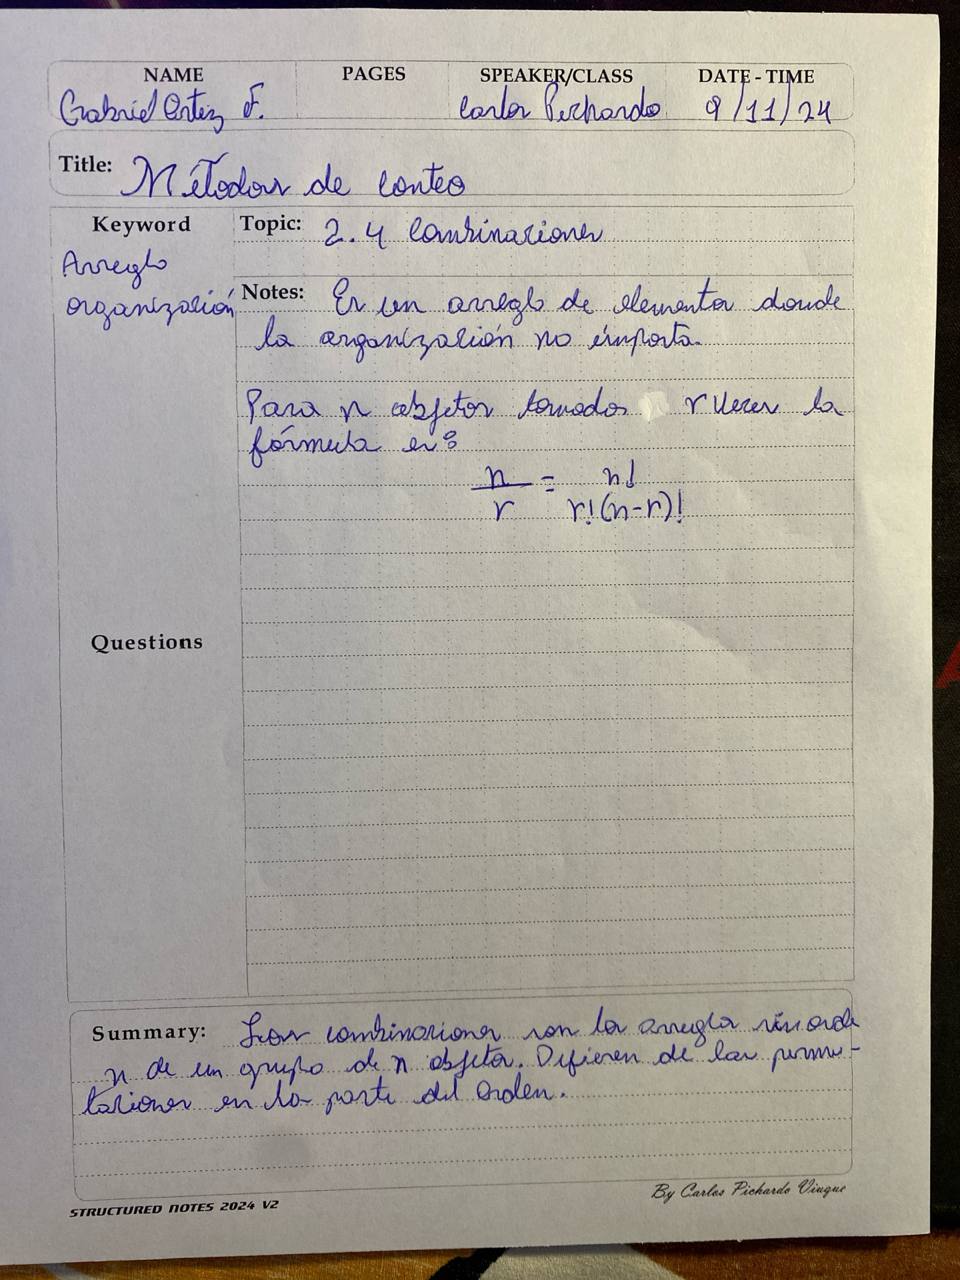 NAME PAGES SPEAKER/CLASS DATE - TIME
Gabriel Ortez F. Carlos Pichardo 9/11/24
Title: Métodos de conteo
Keyword Topic: 2.4 Combinaciones
Arreglo
organización Notes: Es un arreglo de elementos donde
la organización no importa.
Para n objetos tomados r veces la
fórmula es:
n/r = n!/r!(n-r)!
Questions
Summary: Las combinaciones son los arreglos sin orde
n de un grupo de n objetos. Difieren de las permu-
taciones en la parte del orden.
STRUCTURED NOTES 2024 V2
By Carlos Pichardo Viuque